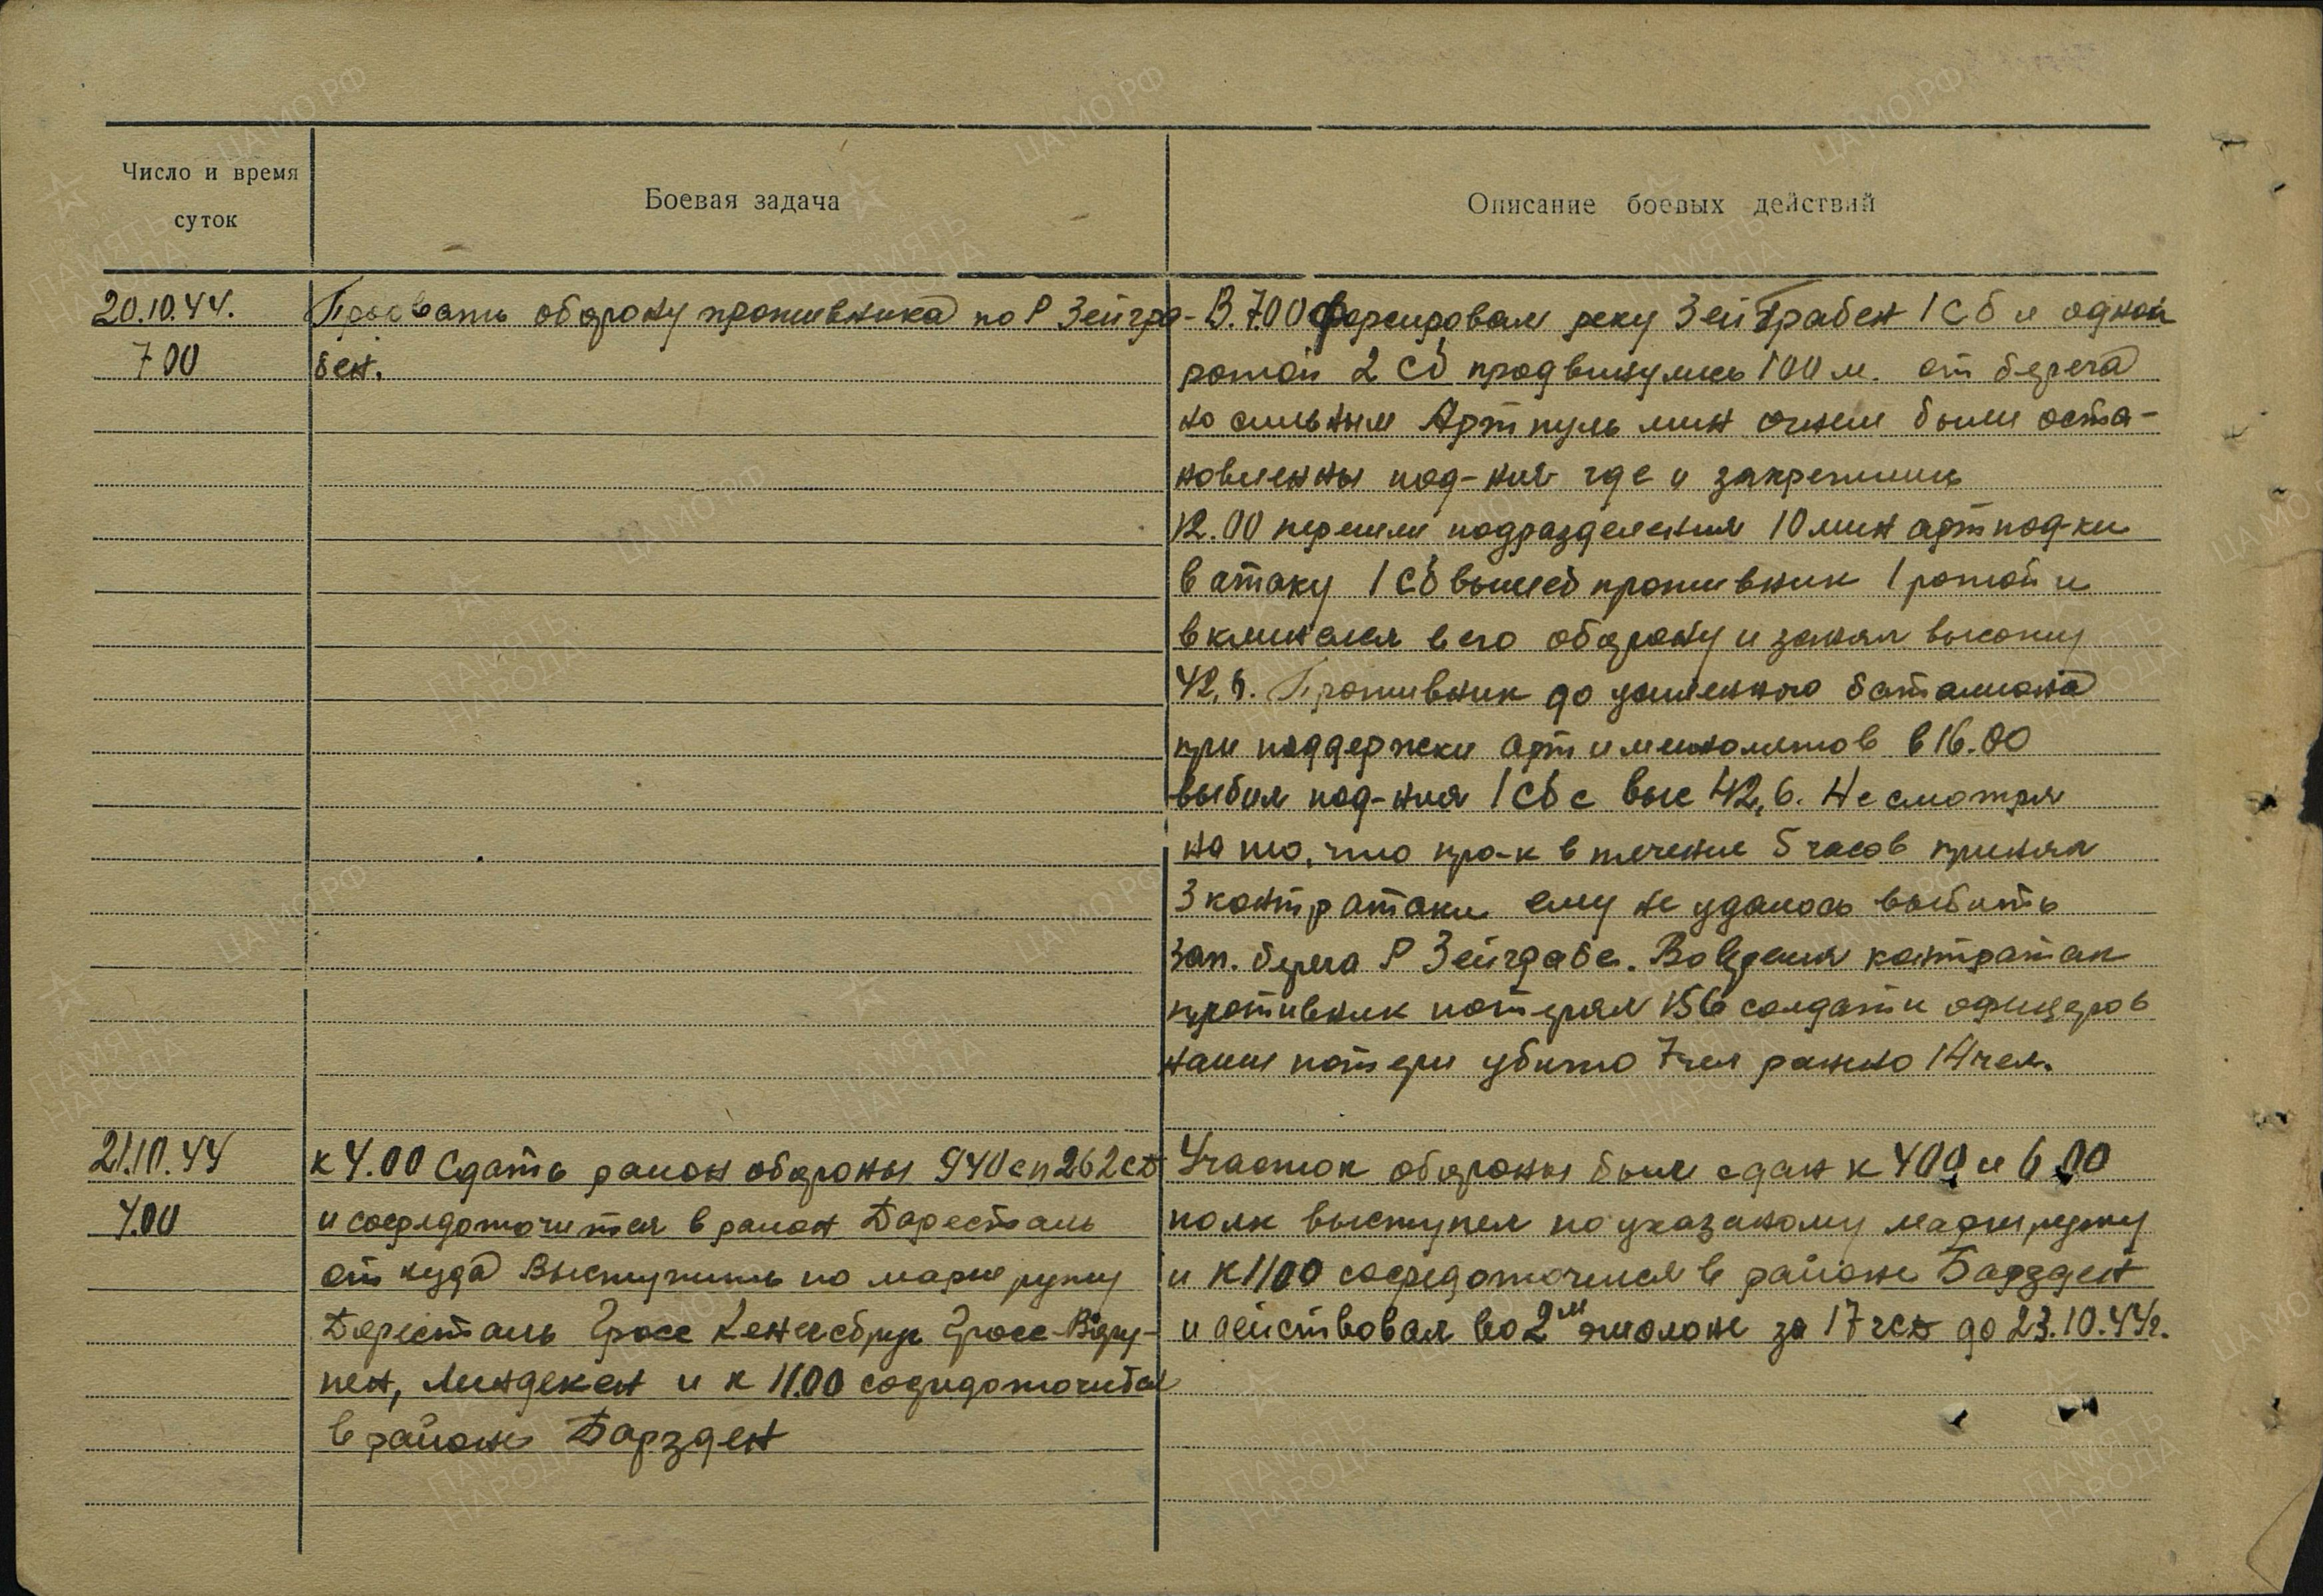 Число и время
суток
Боевая задача
Описание боевых действий
20.10.44.
7 00
Прорвать оборону противника по Р Зейгра-
бен.
В 7.00 форсировал реку Зейграбен 1 сб и одной
ротой 2 сб продвинулись 100 м. от берега
но сильным Арт пуль мин огнем были оста-
новленны под-ния где и закрепились
12.00 перешли подразделения 10 мин артпод-ки
в атаку 1 сб выбив противник 1 ротой и
вклинился в его оборону и занял высоту
42,6. Противник до усиленного баталиона
при поддержки арт и минометов в 16.00
выбил под-ния 1 сб с выс 42,6. Не смотря
на то, что про-к в течение 5 часов принял
3 контратаки ему не удалось выбить
зап. берега Р Зейграбе. Во время контратак
противник потерял 156 солдат и офицеров
наши потери убито 7 чел ранено 14 чел.
21.10.44
4.00
к 4.00 Сдать район обороны 940 сп 262 сд
и сосредоточится в район Даресталь
от куда Выступить по маршруту
Даресталь Гросс Кенигсбрук Гросс-Вару-
пен, Линдекен и к 11.00 сосредоточится
в районе Барзден
Участок обороны был сдан к 4 00 и 6 00
полк выступил по указаному маршруту
и к 11 00 сосредоточился в районе Барзден
и действовал во 2м эшолоне за 17 гсд до 23.10.44г.
ЦАМО РФ
ПАМЯТЬ
НАРОДА